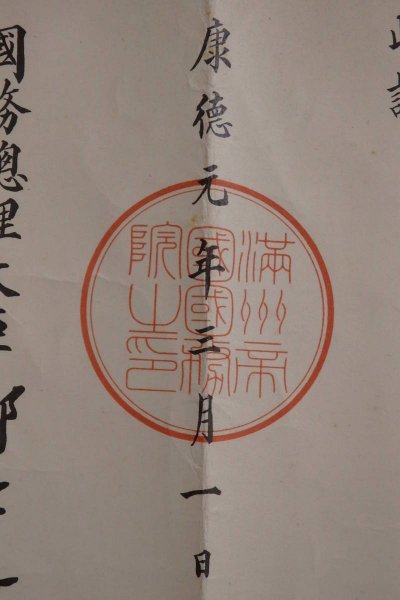 康德元年三月一日
滿州帝
國國務
院之印
國務總理大臣鄭